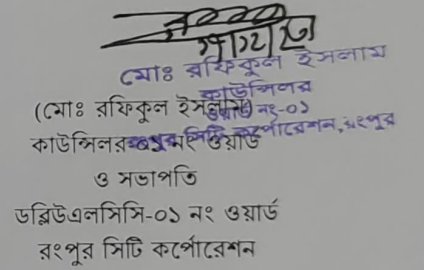 মোঃ রফিকুল ইসলাম
কাউন্সিলর
ওয়ার্ড নং-০১
রংপুর সিটি কর্পোরেশন, রংপুর
(মোঃ রফিকুল ইসলাম)
কাউন্সিলর ০১ নং ওয়ার্ড
ও সভাপতি
ডব্লিউএলসিসি-০১ নং ওয়ার্ড
রংপুর সিটি কর্পোরেশন